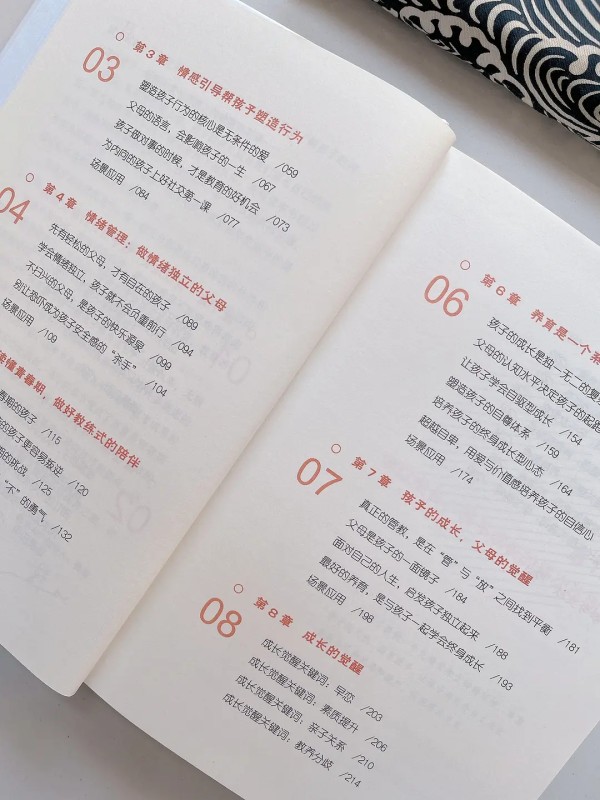 03
第3章 情感引导帮孩子塑造行为
塑造孩子行为的核心是无条件的爱 /059
父母的语言，会影响孩子的一生 /067
孩子做对事的时候，才是教育的好机会 /073
为内向的孩子上好社交第一课 /077
场景应用 /084
04
第4章 情绪管理：做情绪独立的父母
先有轻松的父母，才有自在的孩子 /089
学会情绪独立，孩子就不会负重前行 /094
不扫兴的父母，是孩子的快乐源泉 /099
别让恐吓成为孩子安全感的“杀手” /104
场景应用 /109
读懂青春期，做好教练式的陪伴
春期的孩子 /115
的孩子更容易叛逆 /120
期的挑战 /125
“不”的勇气 /132
06
第6章 养育是一个系
孩子的成长是独一无二的复
父母的认知水平决定孩子的起跑
让孩子学会自驱型成长 /154
塑造孩子的自尊体系 /159
培养孩子的终身成长型心态 /164
超越自卑，用爱与价值感培养孩子的自信心
场景应用 /174
07
第7章 孩子的成长，父母的觉醒
真正的管教，是在“管”与“放”之间找到平衡 /181
父母是孩子的一面镜子 /184
面对自己的人生，启发孩子独立起来 /188
最好的养育，是与孩子一起学会终身成长 /193
场景应用 /198
08
第8章 成长的觉醒
成长觉醒关键词：早恋 /203
成长觉醒关键词：素质提升 /206
成长觉醒关键词：亲子关系 /210
成长觉醒关键词：教养分歧 /214